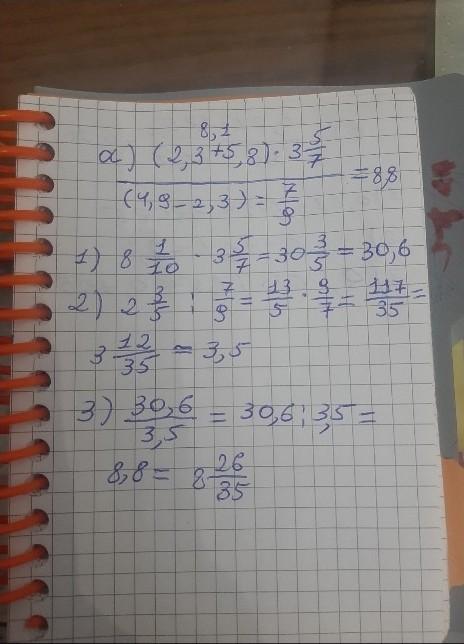 8,1
a) (2,3+5,8) · 3 5/7
= 8,8
(4,9-2,3) = 7/9
1) 8 1/10 · 3 5/7 = 30 3/5 = 30,6
2) 2 3/5 : 7/9 = 13/5 · 9/7 = 117/35 =
3 12/35 = 3,5
3) 30,6/3,5 = 30,6 : 3,5 =
8,8 = 8 26/35